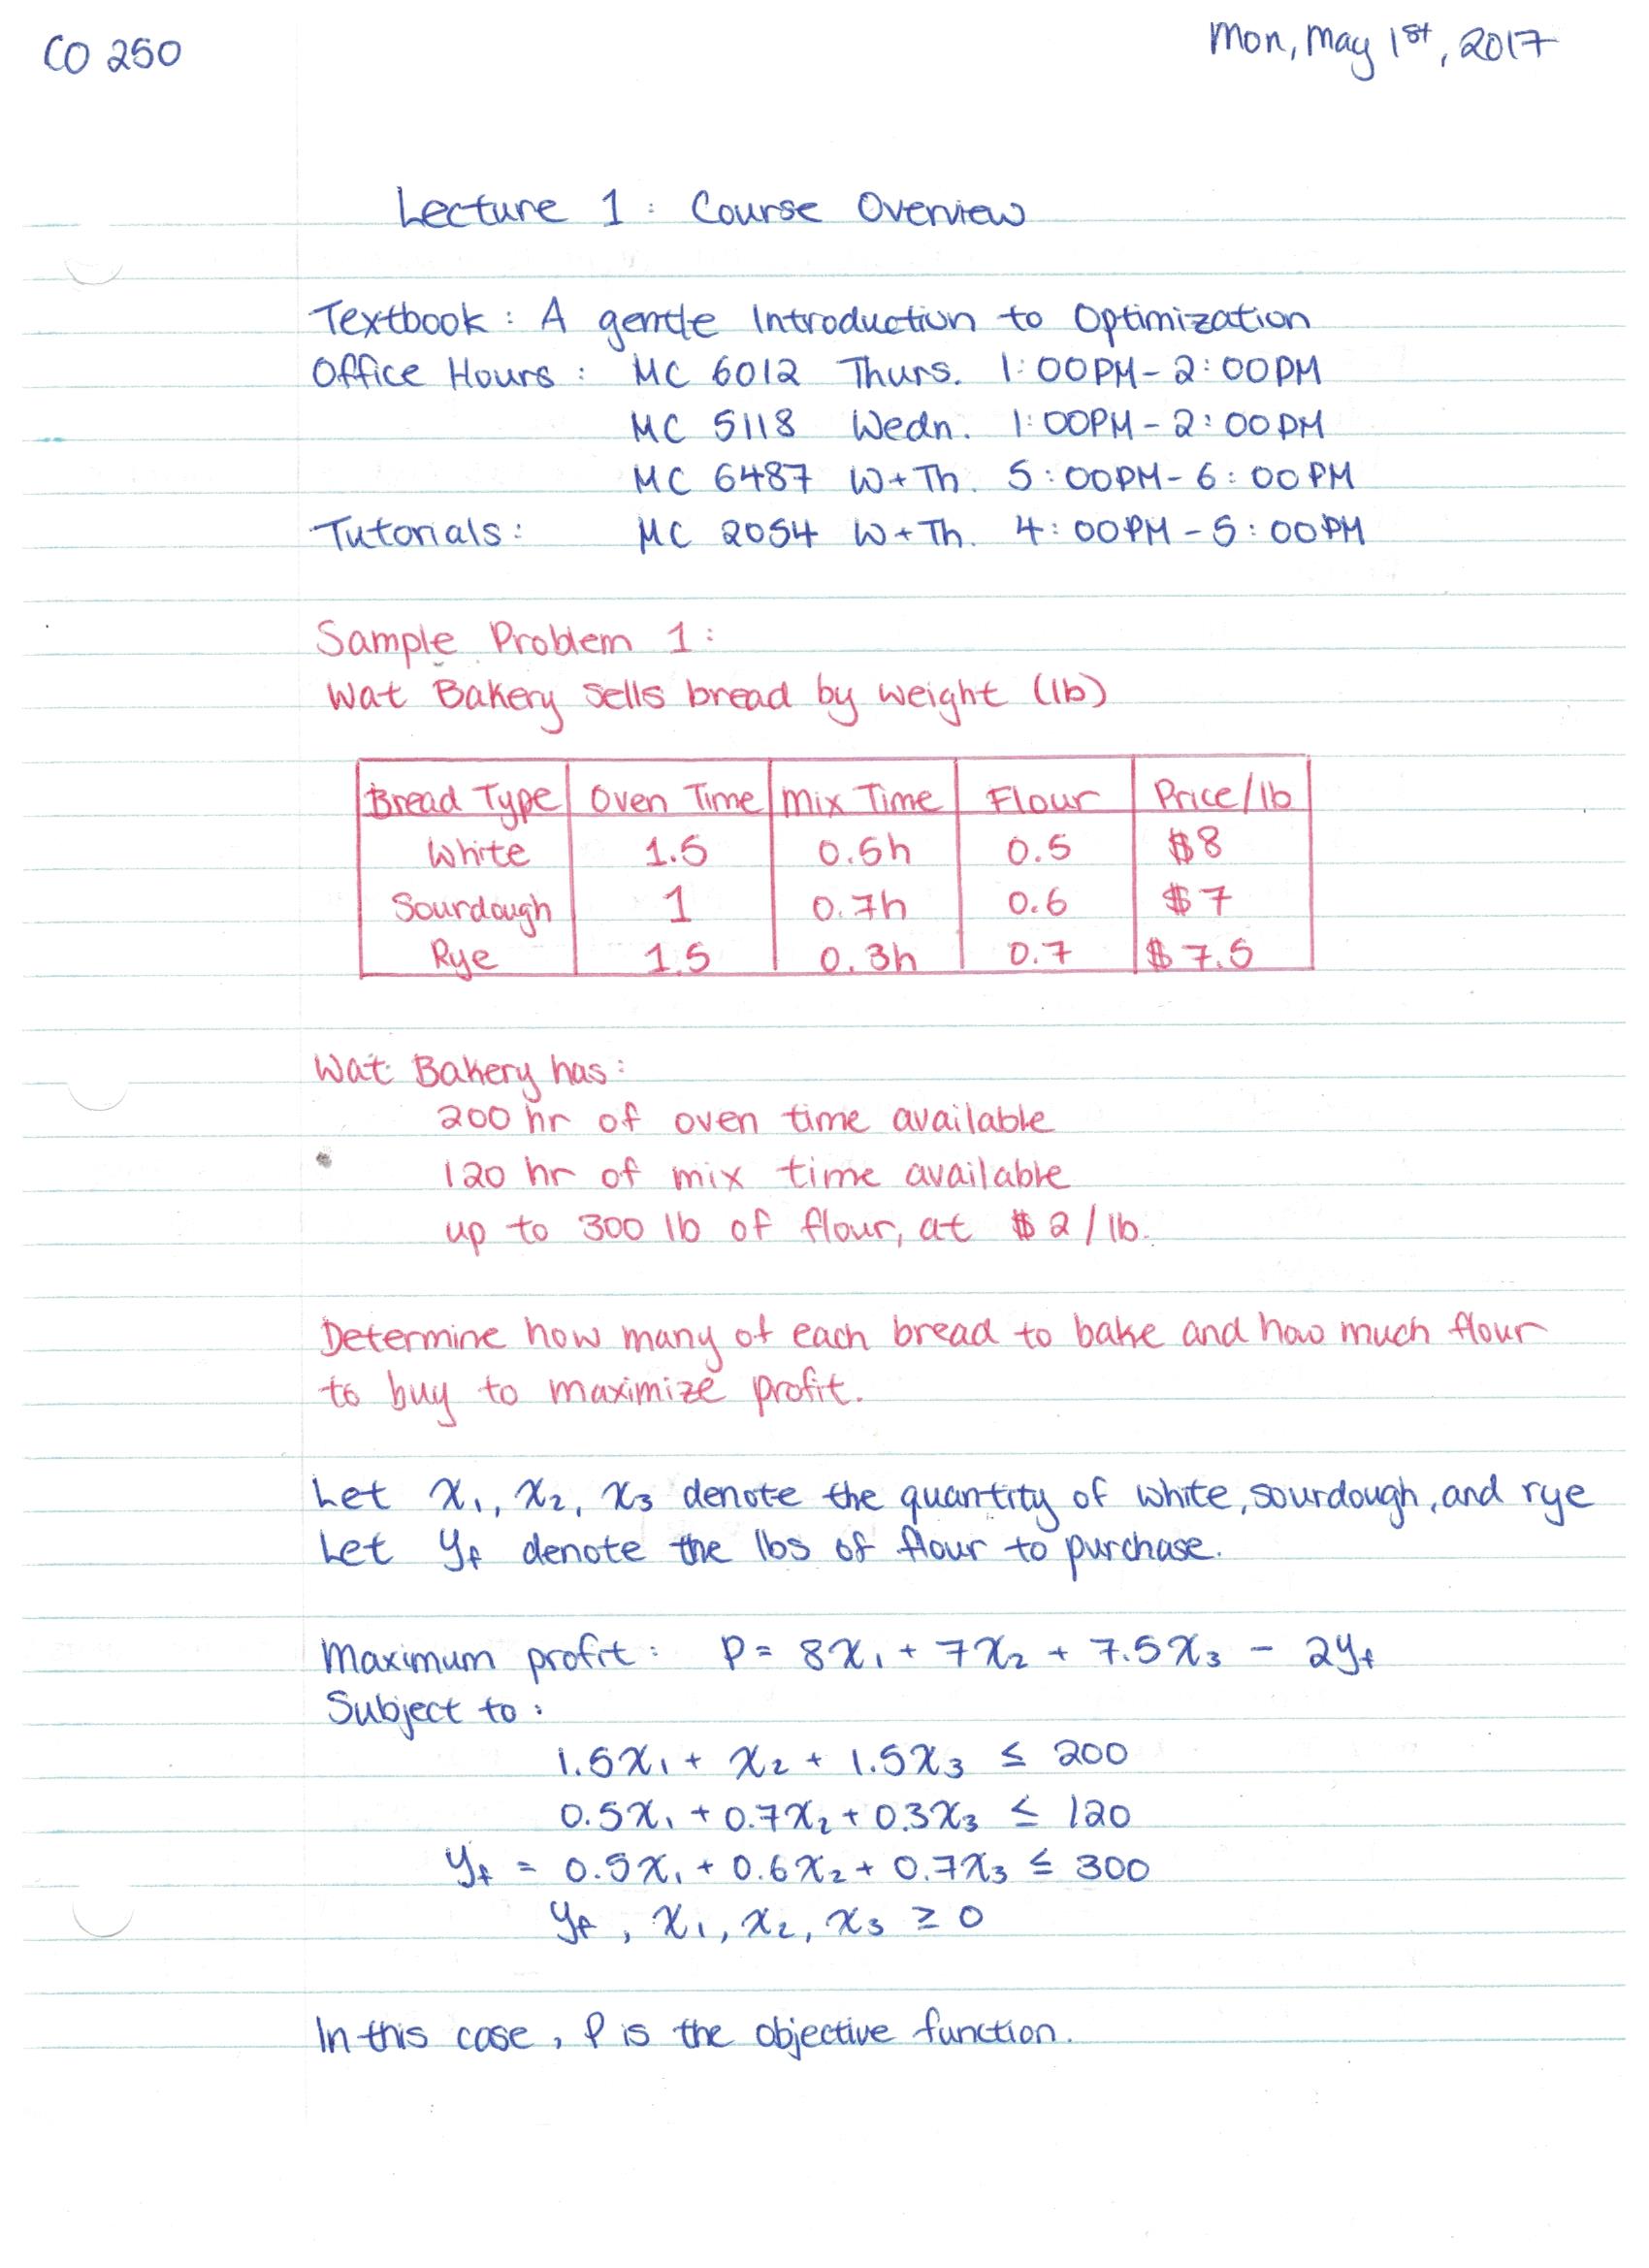 CO 250
Mon, May 1st, 2017
Lecture 1: Course Overview
Textbook: A gentle Introduction to Optimization
Office Hours: MC 6012 Thurs. 1:00PM-2:00PM
MC 5118 Wedn. 1:00PM-2:00PM
MC 6487 W+Th. 5:00PM-6:00PM
Tutorials: MC 2054 W+Th. 4:00PM-5:00PM
Sample Problem 1:
Wat Bakery sells bread by weight (lb)
Bread Type Oven Time Mix Time Flour Price/lb
White 1.5 0.5h 0.5 $8
Sourdough 1 0.7h 0.6 $7
Rye 1.5 0.3h 0.7 $7.5
Wat Bakery has:
200 hr of oven time available
120 hr of mix time available
up to 300 lb of flour, at $2/lb.
Determine how many of each bread to bake and how much flour
to buy to maximize profit.
Let x₁, x₂, x₃ denote the quantity of white, sourdough, and rye
Let y_f denote the lbs of flour to purchase.
Maximum profit: P = 8x₁ + 7x₂ + 7.5x₃ - 2y_f
Subject to:
1.5x₁ + x₂ + 1.5x₃ ≤ 200
0.5x₁ + 0.7x₂ + 0.3x₃ ≤ 120
y_f = 0.5x₁ + 0.6x₂ + 0.7x₃ ≤ 300
y_f, x₁, x₂, x₃ ≥ 0
In this case, P is the objective function.